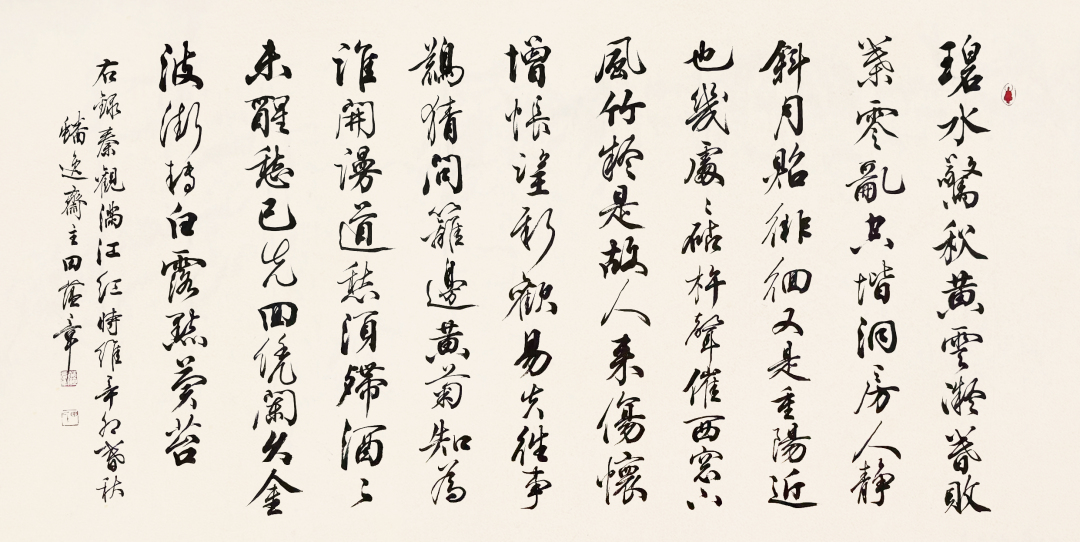 碧水驚秋黄雲凝暮敗
葉零亂空堦洞房人靜
斜月照徘徊又是重陽近
也幾處〻砧杵聲催西窓下
風竹疑是故人来傷懷
增悵望新歡易失往事
難猜問籬邊黄菊知為
誰開謾道愁須殢酒〻
未醒愁已先回凭闌久金
波漸轉白露點蒼苔
右録秦觀滿江紅時維辛卯暮秋
逸齋主田蘊章